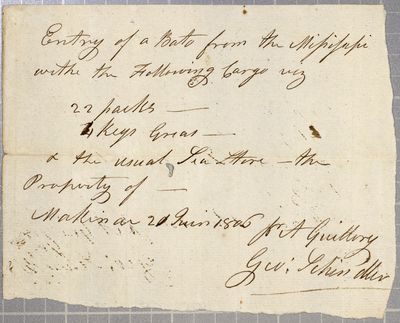 Entry of a Bato from the Missisipi
withe the Following Cargo viz
22 packs —
4 Kegs Greas —
& the usual Sea Store — the
Property of —
Mackinac 20 Juin 1806 pr A Guillory
Geo: Schindler